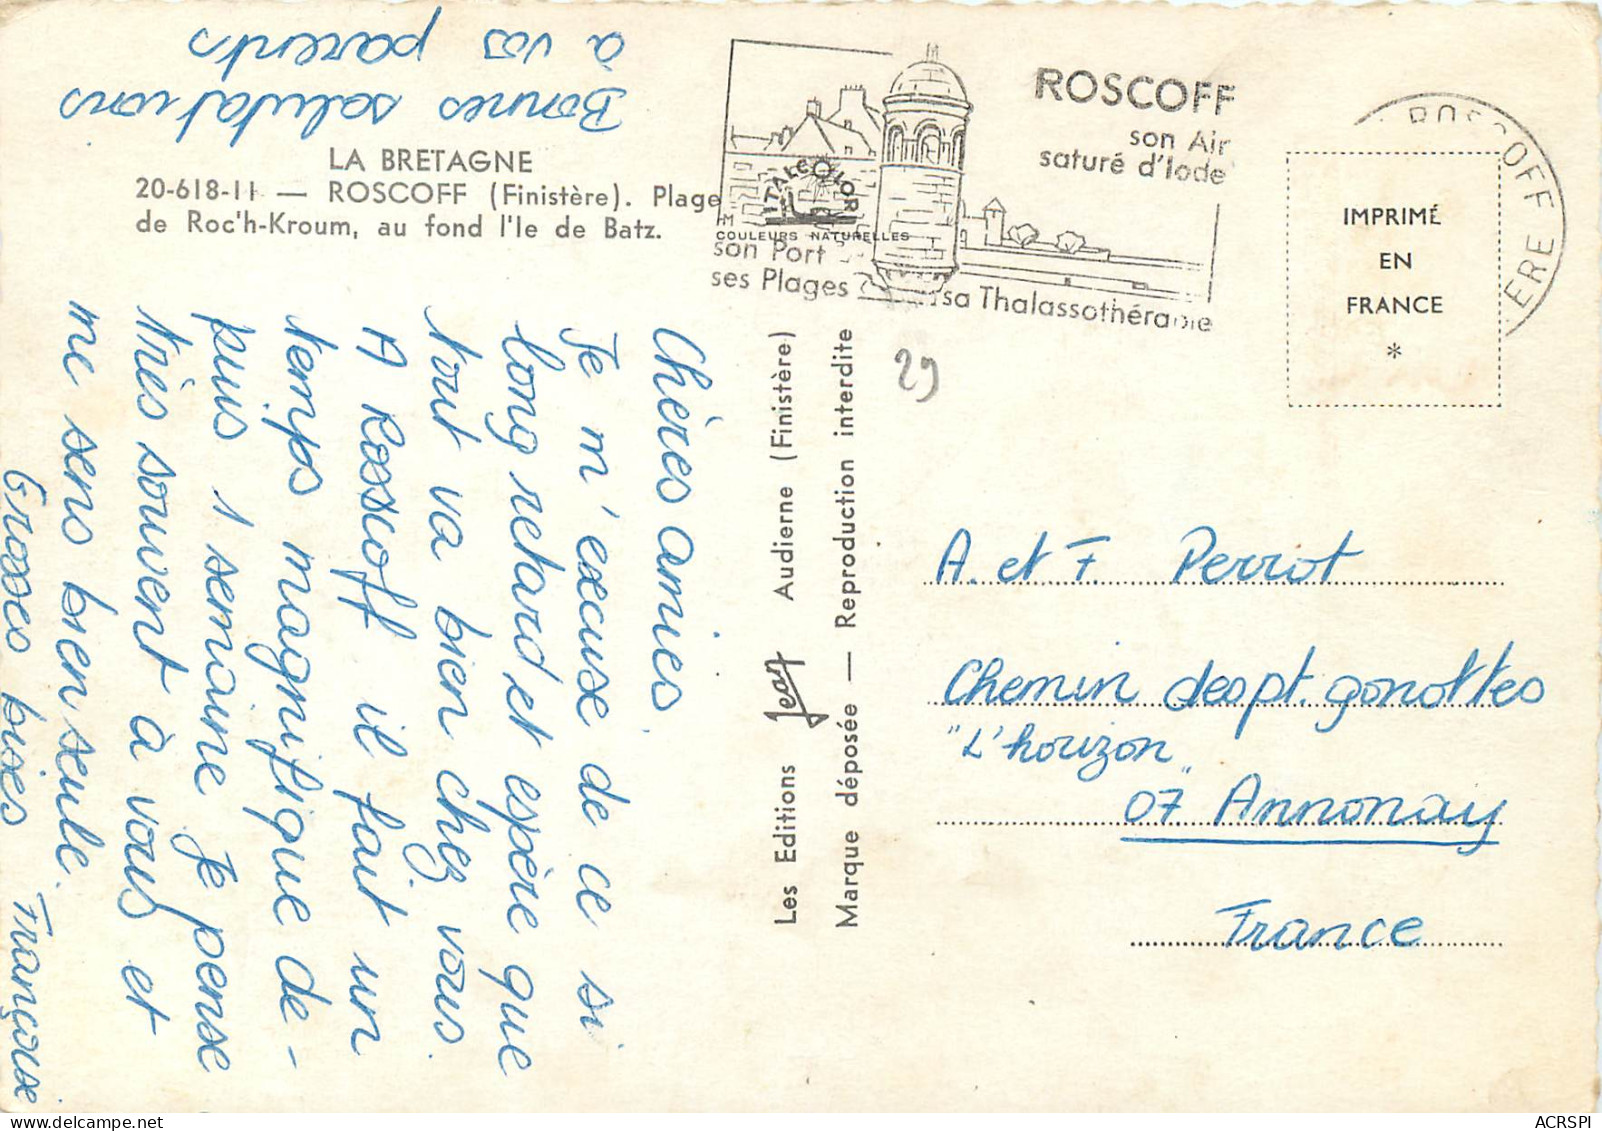 Bonnes salutations
à vos parents
LA BRETAGNE
20-618-11 — ROSCOFF (Finistère). Plage
de Roc'h-Kroum, au fond l'Ie de Batz.
Chères amies.
Je m'excuse de ce si
long retard et espère que
tout va bien chez vous.
A Rosscoff il fait un
temps magnifique de-
puis 1 semaine Je pense
très souvent à vous et
me sens bien seule.
Grosses bises Françoise
Les Editions Jean Audierne (Finistère)
Marque déposée — Reproduction interdite
ITALCOLOR
COULEURS NATURELLES
ROSCOFF
son Air
saturé d'Iode
son Port
ses Plages sa Thalassothérapie
ROSCOFF
IMPRIMÉ
EN
FRANCE
*
29
A. et F. Perrot
Chemin des pt. gonottes
"L'horizon"
07 Annonay
France
ACRSPI